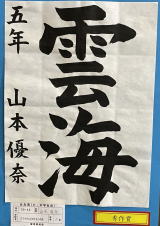 雲海
五年 山本優奈
秀作賞